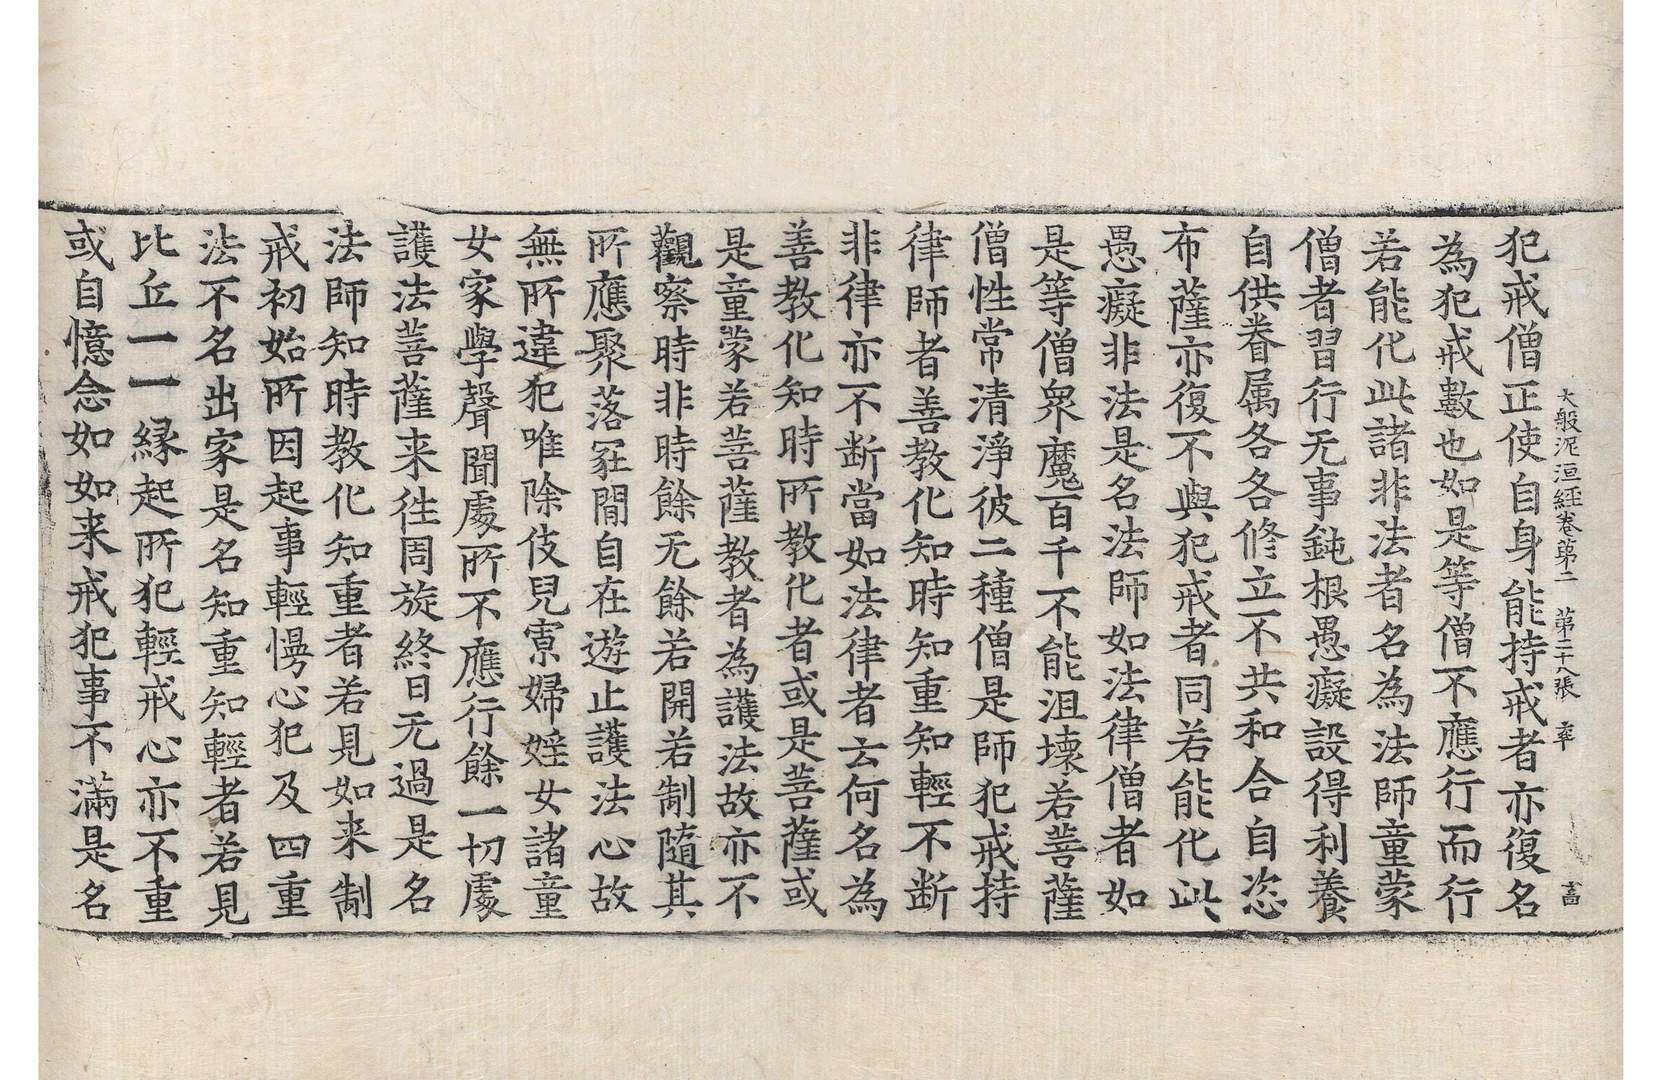 大般泥洹經卷第二 第二十八張 率 畗
犯戒僧正使自身能持戒者亦復名
為犯戒數也如是等僧不應行而行
若能化此諸非法者名為法師童蒙
僧者習行无事鈍根愚癡設得利養
自供眷属各各修立不共和合自恣
布薩亦復不與犯戒者同若能化此
愚癡非法是名法師如法律僧者如
是等僧眾魔百千不能沮壞若菩薩
僧性常清淨彼二種僧是師犯戒持
律師者善教化知時知重知輕不断
非律亦不断當如法律者云何名為
善教化知時所教化者或是菩薩或
是童蒙若菩薩教者為護法故亦不
觀察時非時餘无餘若開若制隨其
所應聚落冢間自在遊止護法心故
無所違犯唯除伎兒寡婦婬女諸童
女家學聲聞處所不應行餘一切處
護法菩薩来往周旋終日无過是名
法師知時教化知重者若見如来制
戒初始所因起事輕慢心犯及四重
法不名出家是名知重知輕者若見
比丘一一緣起所犯輕戒心亦不重
或自憶念如如来戒犯事不滿是名